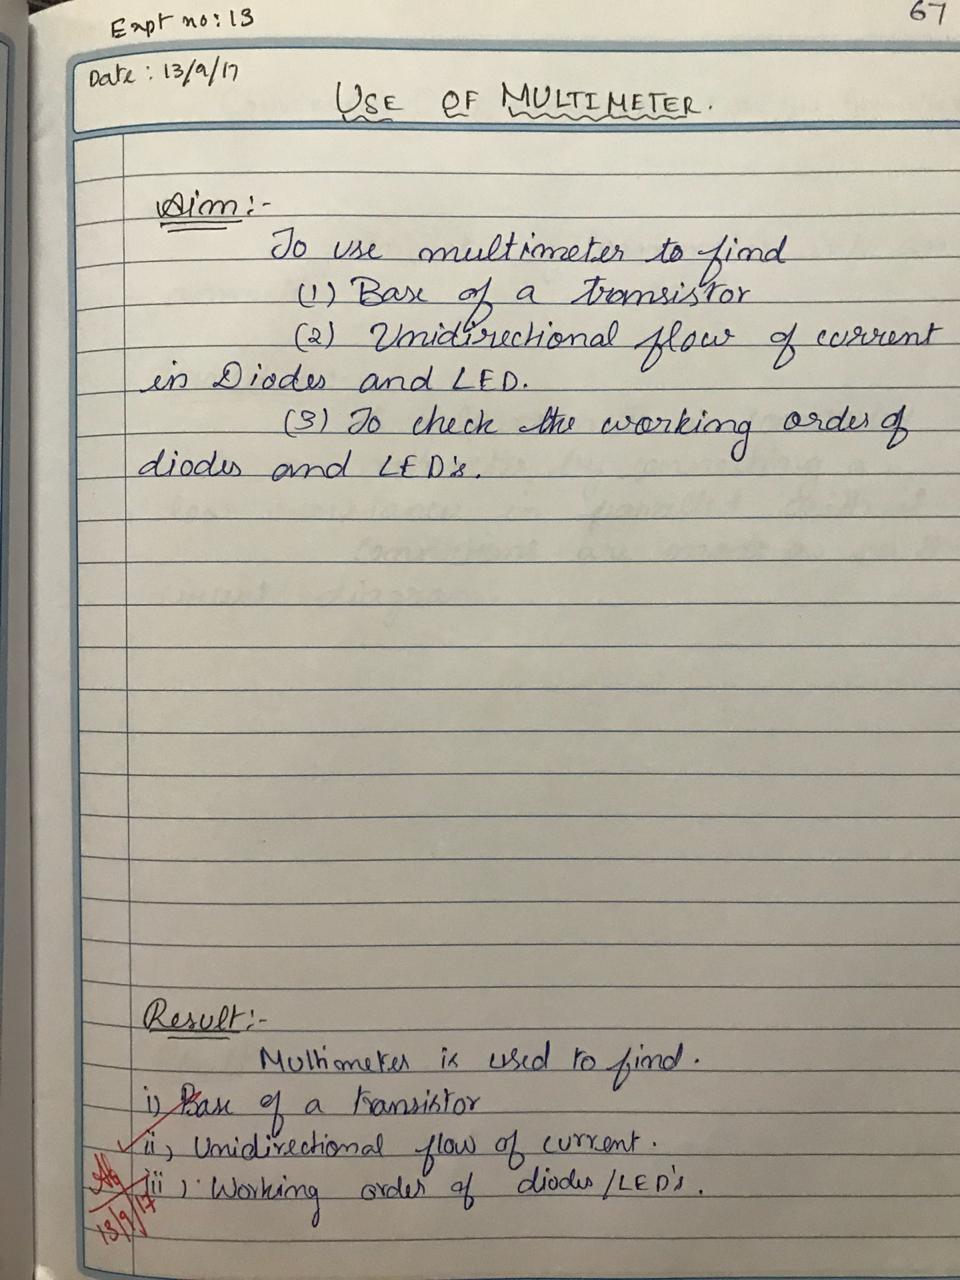 Expt no: 13
67
Date: 13/9/17
USE OF MULTIMETER.
Aim:-
To use multimeter to find
(1) Base of a transistor
(2) Unidirectional flow of current
in Diodes and LED.
(3) To check the working order of
diodes and LED's.
Result:-
Multimeter is used to find.
i) Base of a transistor
ii) Unidirectional flow of current.
iii) Working order of diodes/LED's.
13/9/17